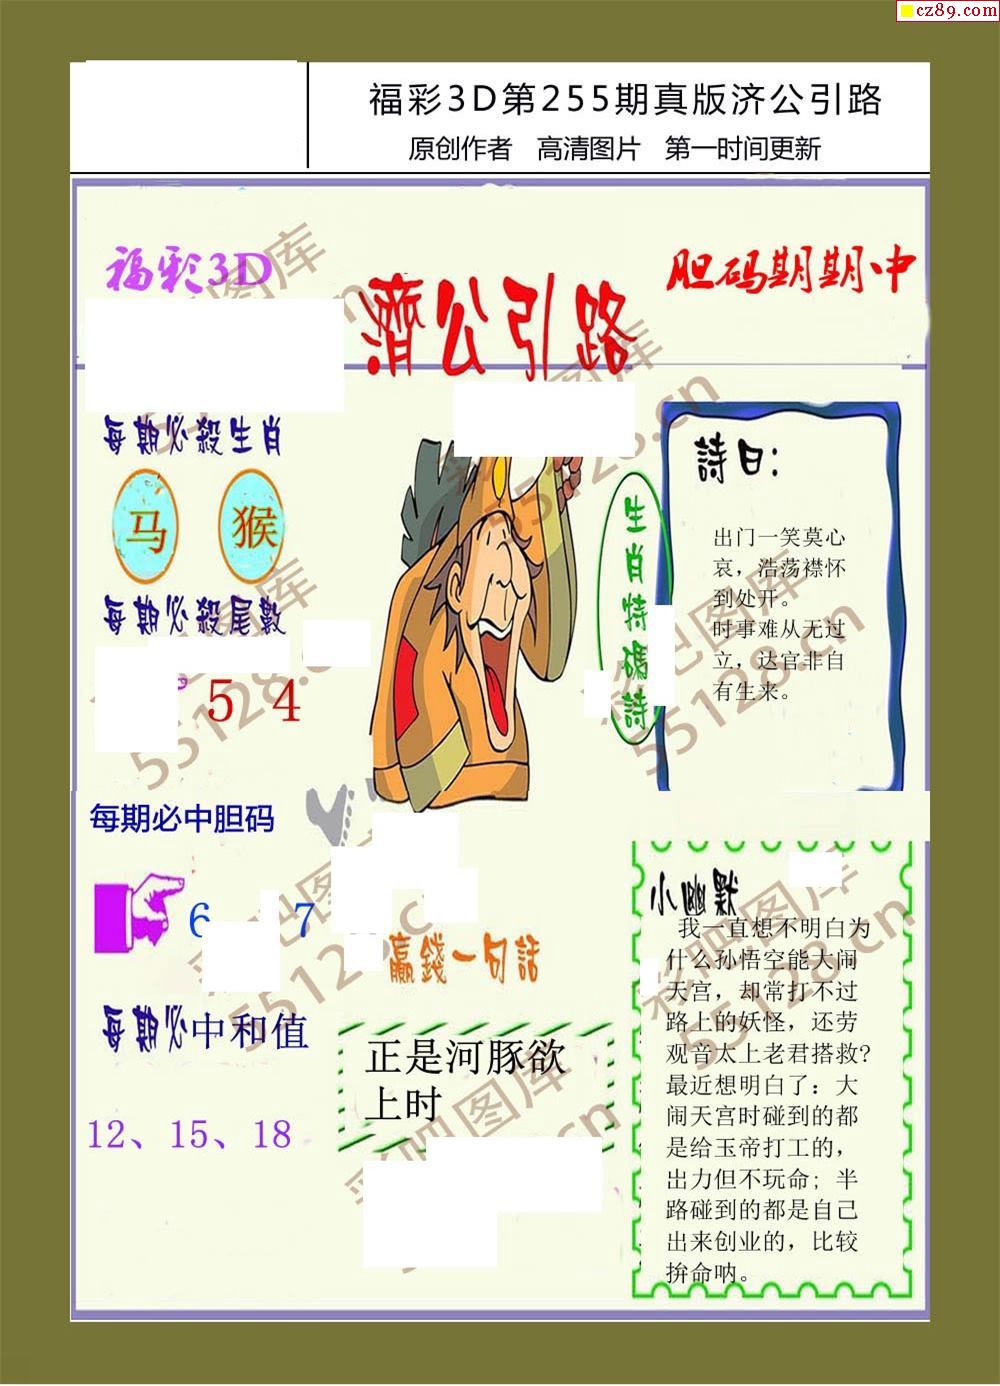 cz89.com
福彩3D第255期真版济公引路
原创作者 高清图片 第一时间更新
福彩3D
濟公引路
胆码期期中
每期必殺生肖
马 猴
每期必殺尾數
5 4
每期必中胆码
6 7
每期必中和值
12、15、18
生肖特碼詩
詩曰：
出门一笑莫心
哀，浩荡襟怀
到处开。
时事难从无过
立，达官非自
有生来。
赢錢一句話
正是河豚欲
上时
小幽默
我一直想不明白为
什么孙悟空能大闹
天宫，却常打不过
路上的妖怪，还劳
观音太上老君搭救?
最近想明白了：大
闹天宫时碰到的都
是给玉帝打工的，
出力但不玩命；半
路碰到的都是自己
出来创业的，比较
拚命呐。
彩吧图库
55128.cn